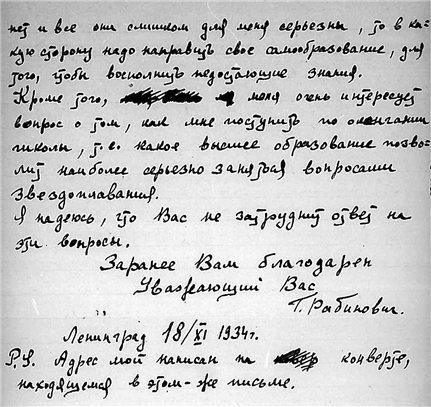 нет и все они слишком для меня серьезны, то в ка-
кую сторону надо направить свое самообразование, для
того, чтобы восполнить недостающие знания.
Кроме того, меня очень интересует
вопрос о том, как мне поступить по окончании
школы, т.е. какое высшее образование позво-
лит наиболее серьезно заняться вопросами
звездоплавания.
Я надеюсь, что Вас не затруднит ответ на
эти вопросы.
Заранее Вам благодарен
Уважающий Вас
Г. Рабинович.
Ленинград 18/XI 1934г.
P.S. Адрес мой написан на конверте,
находящемся в этом-же письме.